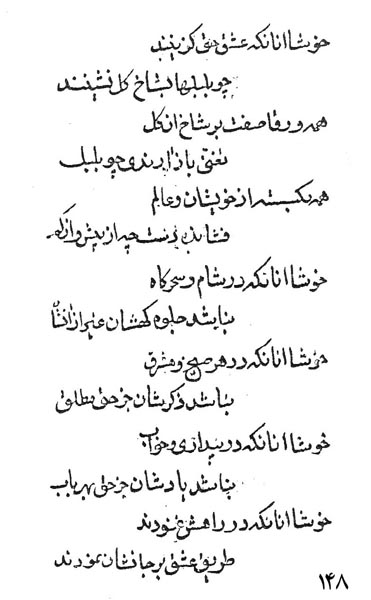 خوشا انانکه عشق حق کزینند
چو بلبلها بشاخ کل نشینند
همه ورقا صفت بر شاخ ان کل
تغنی باذ ارندی چو بلبل
همه بکسسته از خویشان و عالم
فشانده دست چه از بیش و از کم
خوشا انانکه در شام و سحرکاه
نباشد جلوه کهشان غیر از
خوشا انانکه در هر صبح و مشرق
نباشد ذکرشان جز حق مطلق
خوشا انانکه در بیداری و خواب
نباشد یادشان جز حق بهر باب
خوشا انانکه در راهش غنودند
طریق عشق بر جانشان نمودند
۱۴۸